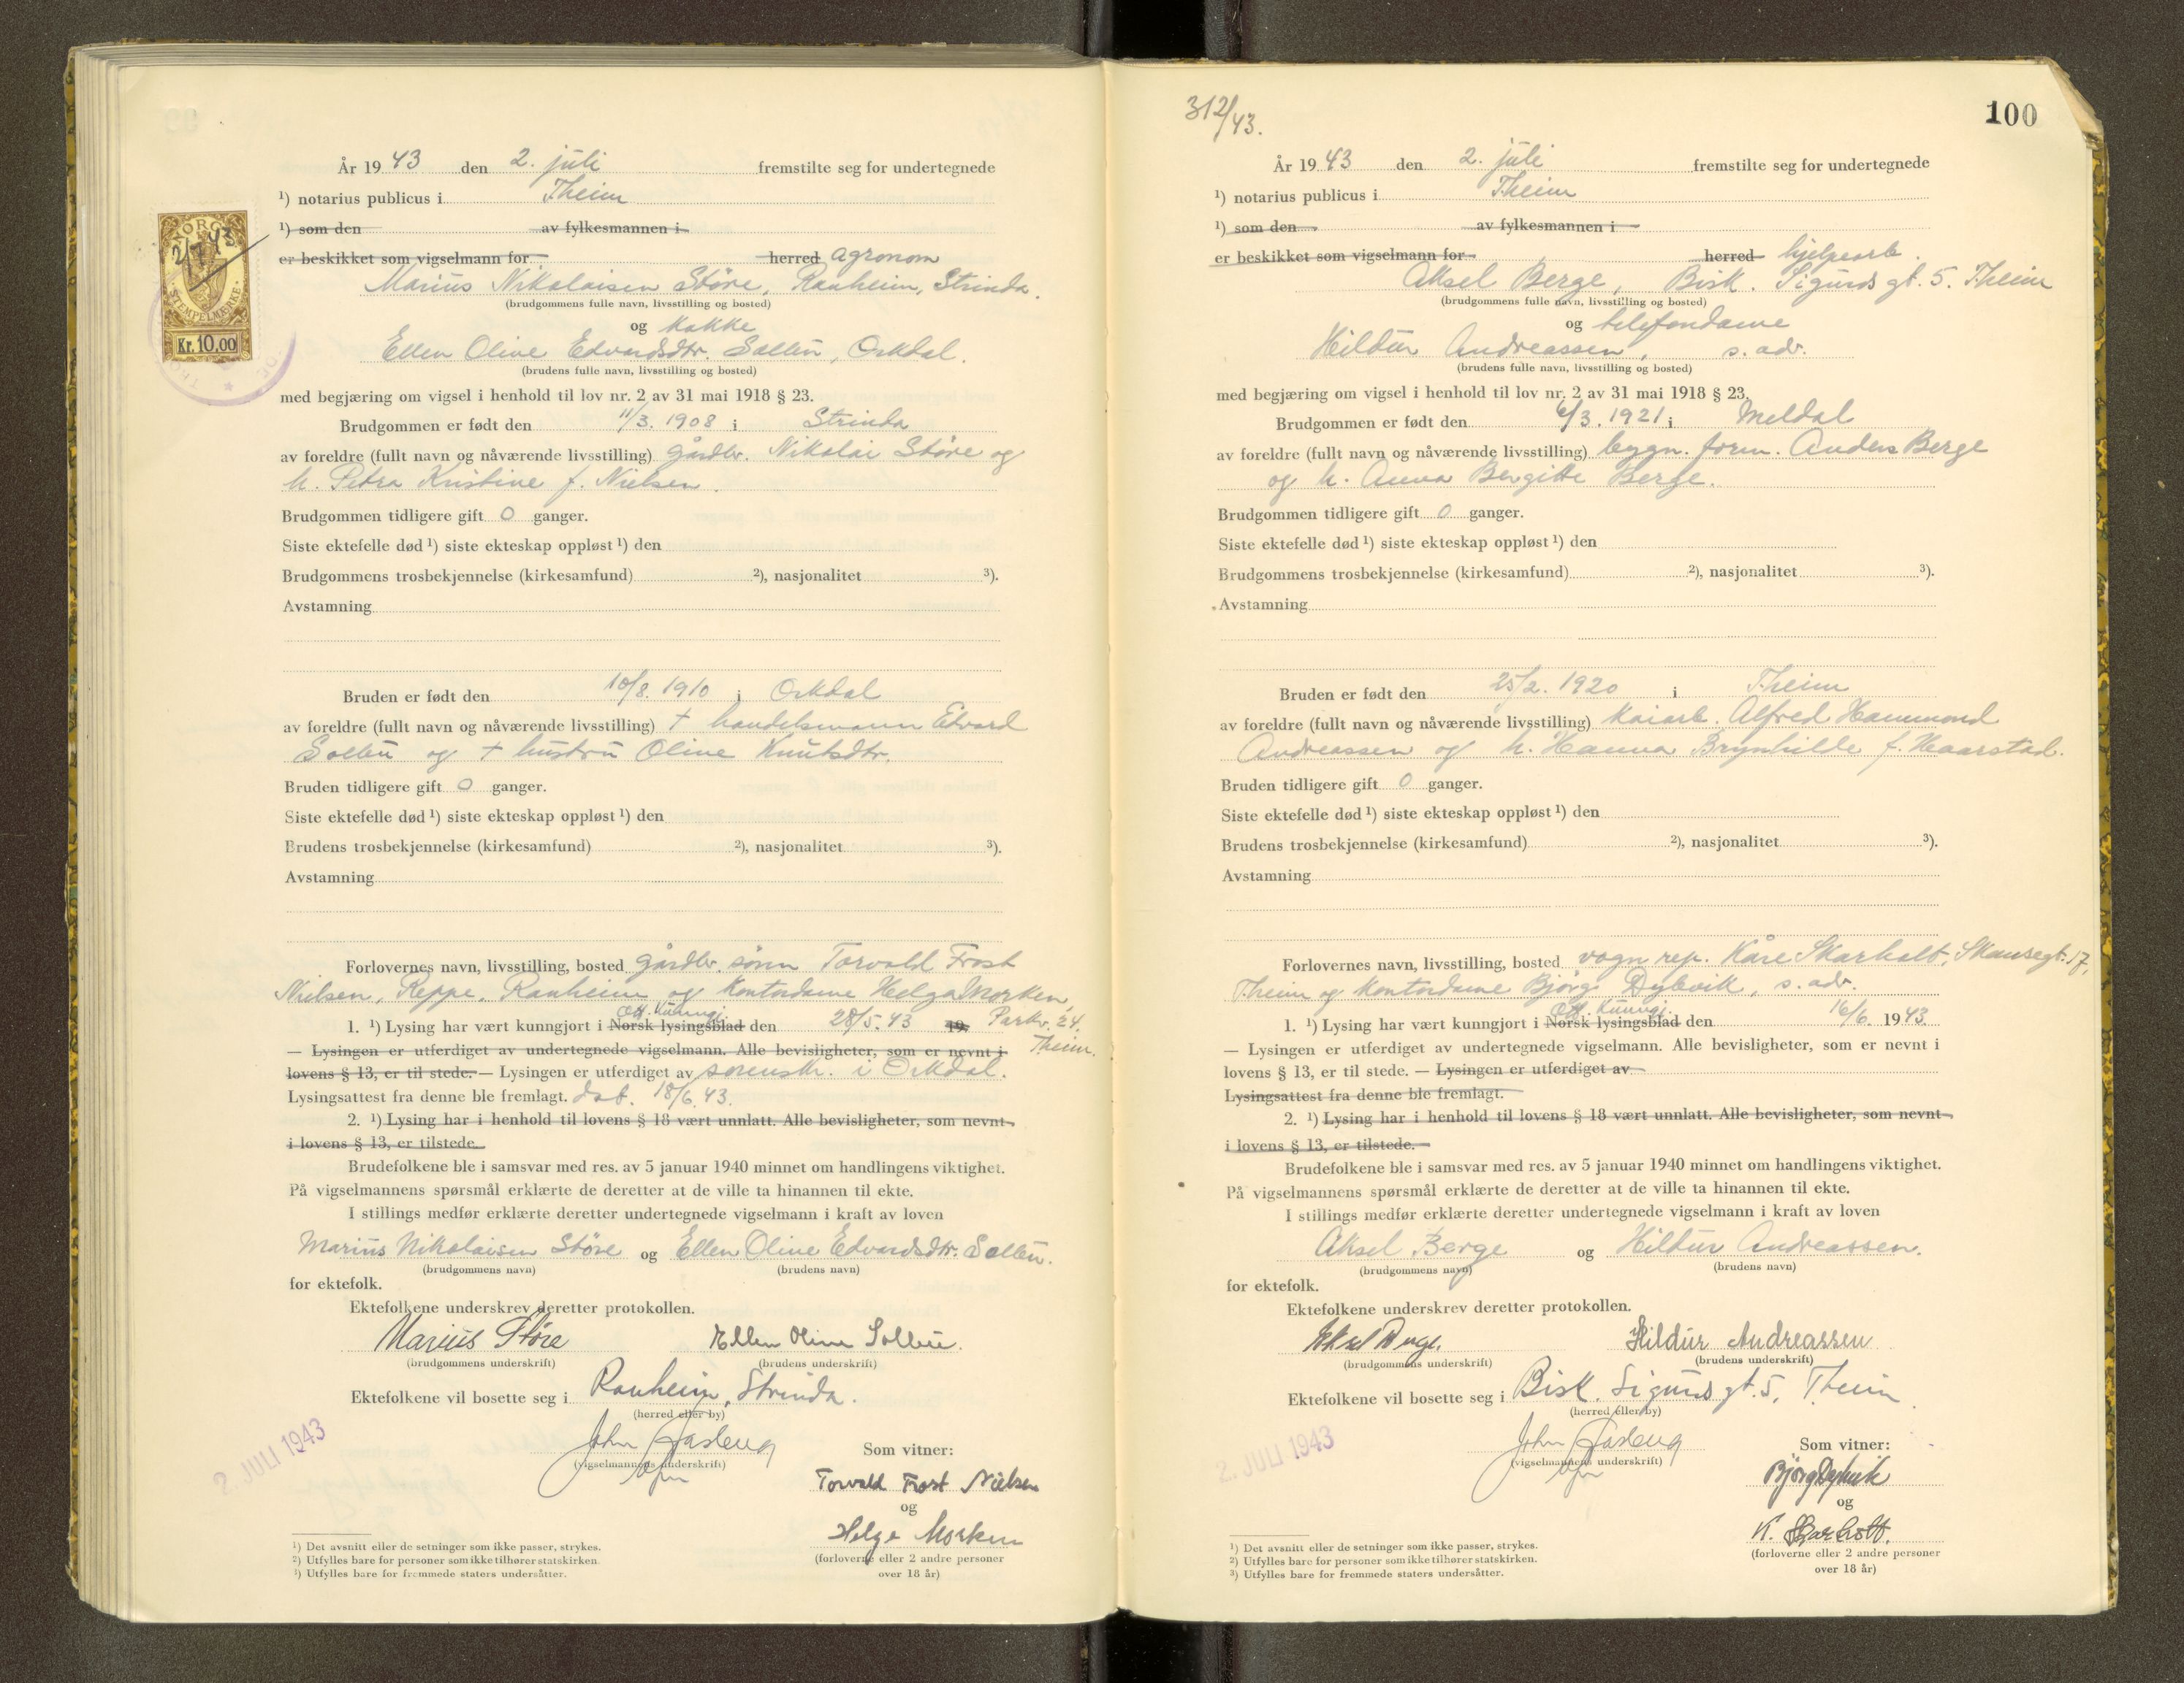 NORGE
2/7 43
STEMPELMERKE
Kr. 10.00
År 1943 den 2. juli fremstilte seg for undertegnede
¹) notarius publicus i T.heim
¹) som den av fylkesmannen i
er beskikket som vigselmann for herred agronom
Marius Nikolaisen Støre, Ranheim, Strinda.
(brudgommens fulle navn, livsstilling og bosted)
og kokke
Ellen Oline Edvardsdtr. Solleu, Orkdal.
(brudens fulle navn, livsstilling og bosted)
med begjæring om vigsel i henhold til lov nr. 2 av 31 mai 1918 § 23.
Brudgommen er født den 11/3. 1908 i Strinda
av foreldre (fullt navn og nåværende livsstilling) gårdbr. Nikolai Støre og
h. Petra Kristine f. Nielsen.
Brudgommen tidligere gift 0 ganger.
Siste ektefelle død ¹) siste ekteskap oppløst ¹) den
Brudgommens trosbekjennelse (kirkesamfund) ²), nasjonalitet ³).
Avstamning
Bruden er født den 10/8. 1910 i Orkdal
av foreldre (fullt navn og nåværende livsstilling) + handelsmann Edvard
Solleu og + hustru Oline Knutsdtr.
Bruden tidligere gift 0 ganger.
Siste ektefelle død ¹) siste ekteskap oppløst ¹) den
Brudens trosbekjennelse (kirkesamfund) ²), nasjonalitet ³).
Avstamning
Forlovernes navn, livsstilling, bosted gårdbr. sønn Torvald Frost
Nielsen, Reppe, Ranheim og kontordame Helga Morken,
Off. Kunngj.
1. ¹) Lysing har vært kunngjort i Norsk lysingsblad den 28/5. 43 19 Parkv. 24.
— Lysingen er utferdiget av undertegnede vigselmann. Alle bevisligheter, som er nevnt i T.heim.
lovens § 13, er til stede. — Lysingen er utferdiget av sorenskr. i Orkdal.
Lysingsattest fra denne ble fremlagt. dat. 18/6. 43.
2. ¹) Lysing har i henhold til lovens § 18 vært unnlatt. Alle bevisligheter, som nevnt
i lovens § 13, er tilstede.
Brudefolkene ble i samsvar med res. av 5 januar 1940 minnet om handlingens viktighet.
På vigselmannens spørsmål erklærte de deretter at de ville ta hinannen til ekte.
I stillings medfør erklærte deretter undertegnede vigselmann i kraft av loven
Marius Nikolaisen Støre og Ellen Oline Edvardsdtr. Solleu.
(brudgommens navn) (brudens navn)
for ektefolk.
Ektefolkene underskrev deretter protokollen.
Marius Støre Ellen Oline Solleu.
(brudgommens underskrift) (brudens underskrift)
Ektefolkene vil bosette seg i Ranheim, Strinda.
(herred eller by)
2. JULI 1943
John Aasleng
(vigselmannens underskrift)
Som vitner:
Torvald Frost Nielsen
og
Helga Morken
(forloverne eller 2 andre personer
over 18 år)
¹) Det avsnitt eller de setninger som ikke passer, strykes.
²) Utfylles bare for personer som ikke tilhører statskirken.
³) Utfylles bare for fremmede staters undersåtter.
312/43.
100
År 1943 den 2. juli fremstilte seg for undertegnede
¹) notarius publicus i T.heim
¹) som den av fylkesmannen i
er beskikket som vigselmann for herred hjelpearb.
Aksel Berge, Bisk. Sigurds gt. 5. T.heim
(brudgommens fulle navn, livsstilling og bosted)
og telefondame
Hildur Andreassen, s. adr.
(brudens fulle navn, livsstilling og bosted)
med begjæring om vigsel i henhold til lov nr. 2 av 31 mai 1918 § 23.
Brudgommen er født den 6/3. 1921 i Meldal
av foreldre (fullt navn og nåværende livsstilling) bygn. form. Anders Berge
og h. Anna Bergitte Berge.
Brudgommen tidligere gift 0 ganger.
Siste ektefelle død ¹) siste ekteskap oppløst ¹) den
Brudgommens trosbekjennelse (kirkesamfund) ²), nasjonalitet ³).
Avstamning
Bruden er født den 25/2. 1920 i T.heim
av foreldre (fullt navn og nåværende livsstilling) kaiarb. Alfred Hammond
Andreassen og h. Hanna Brynhilde f. Haarstad.
Bruden tidligere gift 0 ganger.
Siste ektefelle død ¹) siste ekteskap oppløst ¹) den
Brudens trosbekjennelse (kirkesamfund) ²), nasjonalitet ³).
Avstamning
Forlovernes navn, livsstilling, bosted vogn rep. Kåre Skarholt, Skansegt. 17,
T.heim og kontordame Bjørg Dybvik, s. adr.
Off. Kunngj.
1. ¹) Lysing har vært kunngjort i Norsk lysingsblad den 16/6. 1943.
— Lysingen er utferdiget av undertegnede vigselmann. Alle bevisligheter, som er nevnt i
lovens § 13, er til stede. — Lysingen er utferdiget av
Lysingsattest fra denne ble fremlagt.
2. ¹) Lysing har i henhold til lovens § 18 vært unnlatt. Alle bevisligheter, som nevnt
i lovens § 13, er tilstede.
Brudefolkene ble i samsvar med res. av 5 januar 1940 minnet om handlingens viktighet.
På vigselmannens spørsmål erklærte de deretter at de ville ta hinannen til ekte.
I stillings medfør erklærte deretter undertegnede vigselmann i kraft av loven
Aksel Berge og Hildur Andreassen.
(brudgommens navn) (brudens navn)
for ektefolk.
Ektefolkene underskrev deretter protokollen.
Aksel Berge. Hildur Andreassen
(brudgommens underskrift) (brudens underskrift)
Ektefolkene vil bosette seg i Bisk. Sigurds gt. 5, T.heim
(herred eller by)
2. JULI 1943
John Aasleng
(vigselmannens underskrift)
Som vitner:
Bjørg Dybvik
og
K. Skarholt.
(forloverne eller 2 andre personer
over 18 år)
¹) Det avsnitt eller de setninger som ikke passer, strykes.
²) Utfylles bare for personer som ikke tilhører statskirken.
³) Utfylles bare for fremmede staters undersåtter.